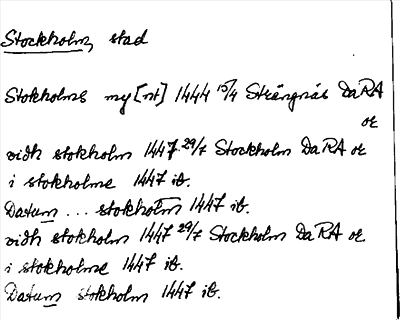 Stockholm, stad
Stokholms my[nt] 1444 15/4 Strängnäs DaRA
or
vidh stokholm 1447 29/7 Stockholm DaRA or
i stokholme 1447 ib.
Datum ... stokholm 1447 ib.
vidh stokholm 1447 29/7 Stockholm DaRA or
i stokholme 1447 ib.
Datum stokholm 1447 ib.